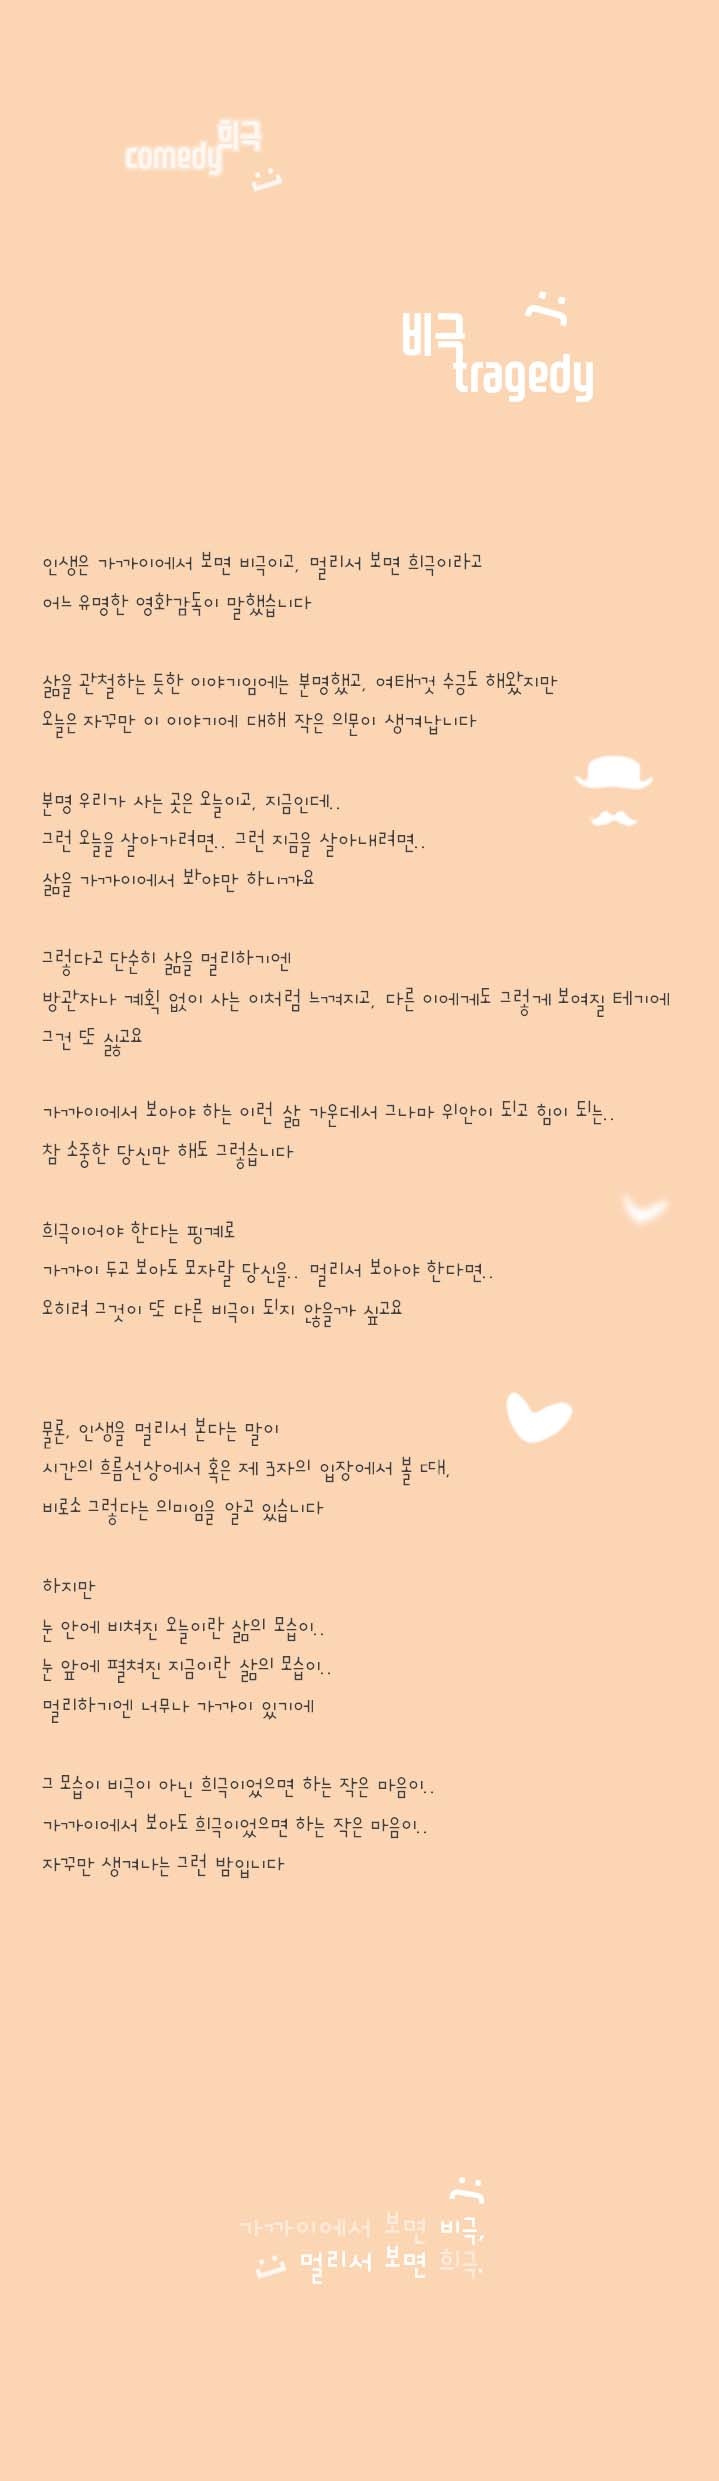 희극
comedy
비극
tragedy
인생은 가까이에서 보면 비극이고, 멀리서 보면 희극이라고
어느 유명한 영화감독이 말했습니다
삶을 관철하는 듯한 이야기임에는 분명했고, 여태껏 수긍도 해왔지만
오늘은 자꾸만 이 이야기에 대해 작은 의문이 생겨납니다
분명 우리가 사는 곳은 오늘이고, 지금인데..
그런 오늘을 살아가려면.. 그런 지금을 살아내려면..
삶을 가까이에서 봐야만 하니까요
그렇다고 단순히 삶을 멀리하기엔
방관자나 계획 없이 사는 이처럼 느껴지고, 다른 이에게도 그렇게 보여질 테기에
그건 또 싫고요
가까이에서 보아야 하는 이런 삶 가운데서 그나마 위안이 되고 힘이 되는..
참 소중한 당신만 해도 그렇습니다
희극이어야 한다는 핑계로
가까이 두고 보아도 모자랄 당신을.. 멀리서 보아야 한다면..
오히려 그것이 또 다른 비극이 되지 않을까 싶고요
물론, 인생을 멀리서 본다는 말이
시간의 흐름선상에서 혹은 제 3자의 입장에서 볼 때,
비로소 그렇다는 의미임을 알고 있습니다
하지만
눈 안에 비쳐진 오늘이란 삶의 모습이..
눈 앞에 펼쳐진 지금이란 삶의 모습이..
멀리하기엔 너무나 가까이 있기에
그 모습이 비극이 아닌 희극이었으면 하는 작은 마음이..
가까이에서 보아도 희극이었으면 하는 작은 마음이..
자꾸만 생겨나는 그런 밤입니다
가까이에서 보면 비극,
멀리서 보면 희극.